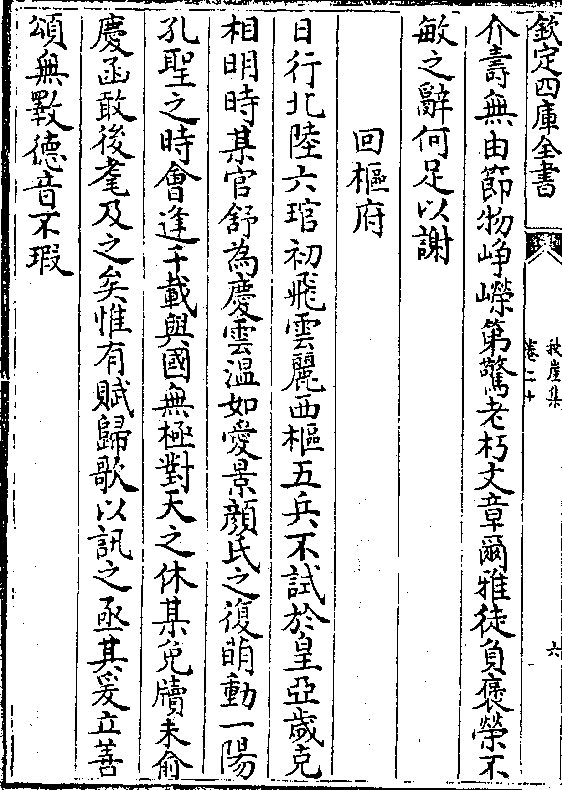 欽定四庫全書
秋崖集
卷二十
六
介壽無由節物崢嶸第驚老朽文章爾雅徒負褒榮不
敏之辭何足以謝
回樞府
日行北陸六琯初飛雲麗西樞五兵不試於皇亞歲克
相明時某官舒為慶雲溫如愛景顔氏之復萌動一陽
孔聖之時㑹逢千載與國無極對天之休某免牘未俞
慶函敢後耄及之矣惟有賦歸歌以訊之亟其爰立善
頌無斁德音不瑕